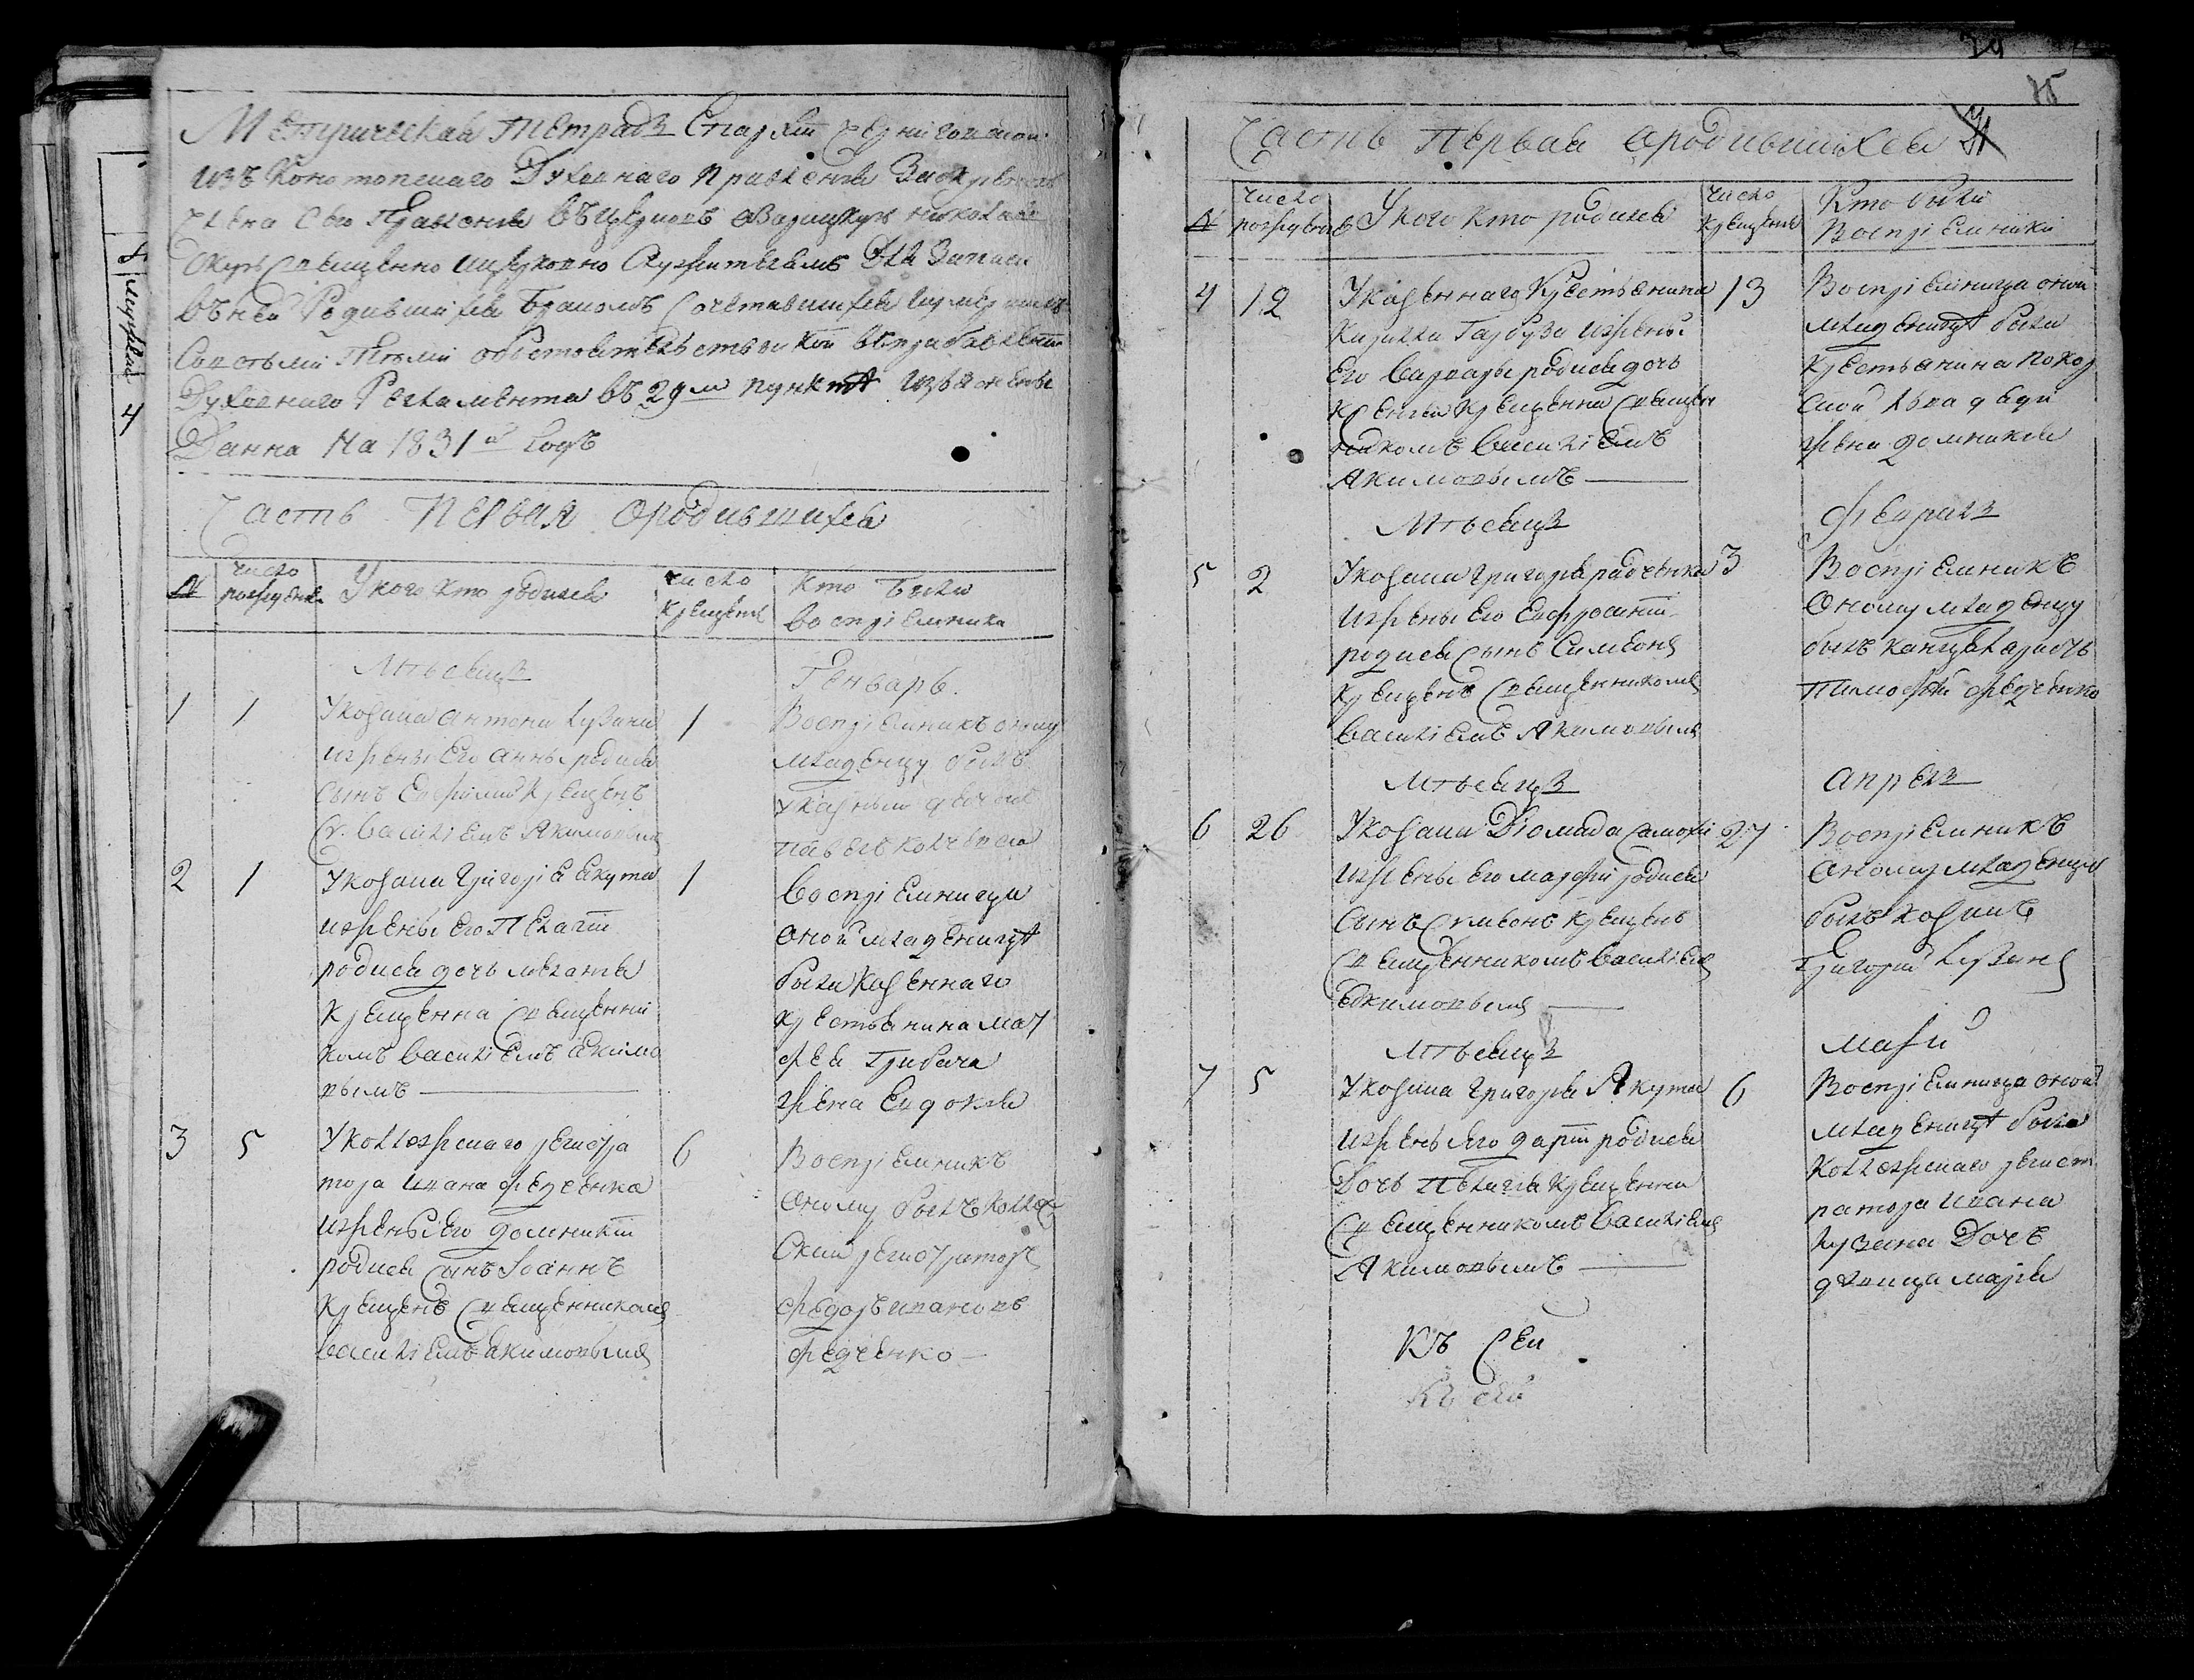 Метрическая тетрадь Епархіи Черниговской
изъ Конотопскаго Духовнаго Правленія За скрепою
члена сего Правленія въ церковь
священно и церковно служителямъ Для Записи
въ ней Родившихся Бракомъ Сочетавшихся и умершихъ
Со всеми теми обстоятельствы кои въ прибавленіи
Духовнаго Регламента въ 29м пункте изъяснены
Данна На 1831й Годъ
Часть Первая о родившихся
№
число рождения
У кого кто родился
число крещения
Кто были восприемники
Месяць
Генварь.
1 1 1
У козака Антона Кузины
и жены его Анны родился
сынъ Евфимий крещенъ
Св. Василиемъ Якимовымъ
Восприемникъ оному
младенцу былъ
указный дьячокъ
Павелъ
2 1 1
У козака Григория Якута
и жены его Пелагіи
родися дочь Меланья
крещенна священни
комъ Василиемъ Якимо
вымъ
Восприемница
оной младенице
была казеннаго
крестьянина Мат
фея Грибача
жена Евдокия
3 5 6
У коллежскаго регистра
тора Ивана Федченка
и жены его Домникіи
родися сынъ Іоаннъ
крещенъ священникомъ
Василиемъ Якимовымъ
Восприемникъ
оному былъ коллеж
ский регистраторъ
Федоръ Ивановъ
Федченко
39
Часть первая о родившихся
№
число рождения
У кого кто родился
число крещения
Кто были
Восприемники
4 12 13
У казеннаго крестьянина
Кирилла Гарбуза и жены
его Варвары родися дочь
Ксения крещенна священ
никомъ Василиемъ
Якимовымъ
Восприемница оной
младенице была
крестьянина
жена Домникия
Месяць
Февраль
5 2 3
У козака Григория Радченка
и жены его Евфросиніи
родися сынъ Симеонъ
крещенъ священникомъ
Василиемъ Якимовымъ
Восприемникъ
оному младенцу
былъ канцеляристъ
Тимофей Федченко
Месяць
Апрель
6 26 27
У козака Діомида
и жены его Марфы родися
сынъ Симеонъ крещенъ
священникомъ Василиемъ
Якимовымъ
Восприемникъ
оному младенцу
былъ козакъ
Григорий Кузина
Месяць
Май
7 5 6
У козака Григория Якута
и жены его Дарии родися
Дочь Пелагия крещенна
священникомъ Василиемъ
Якимовымъ
Восприемница оной
младенице была
коллежскаго регист
ратора Ивана
Кузина Дочь
девица Мария
Къ Сей
Къ сей